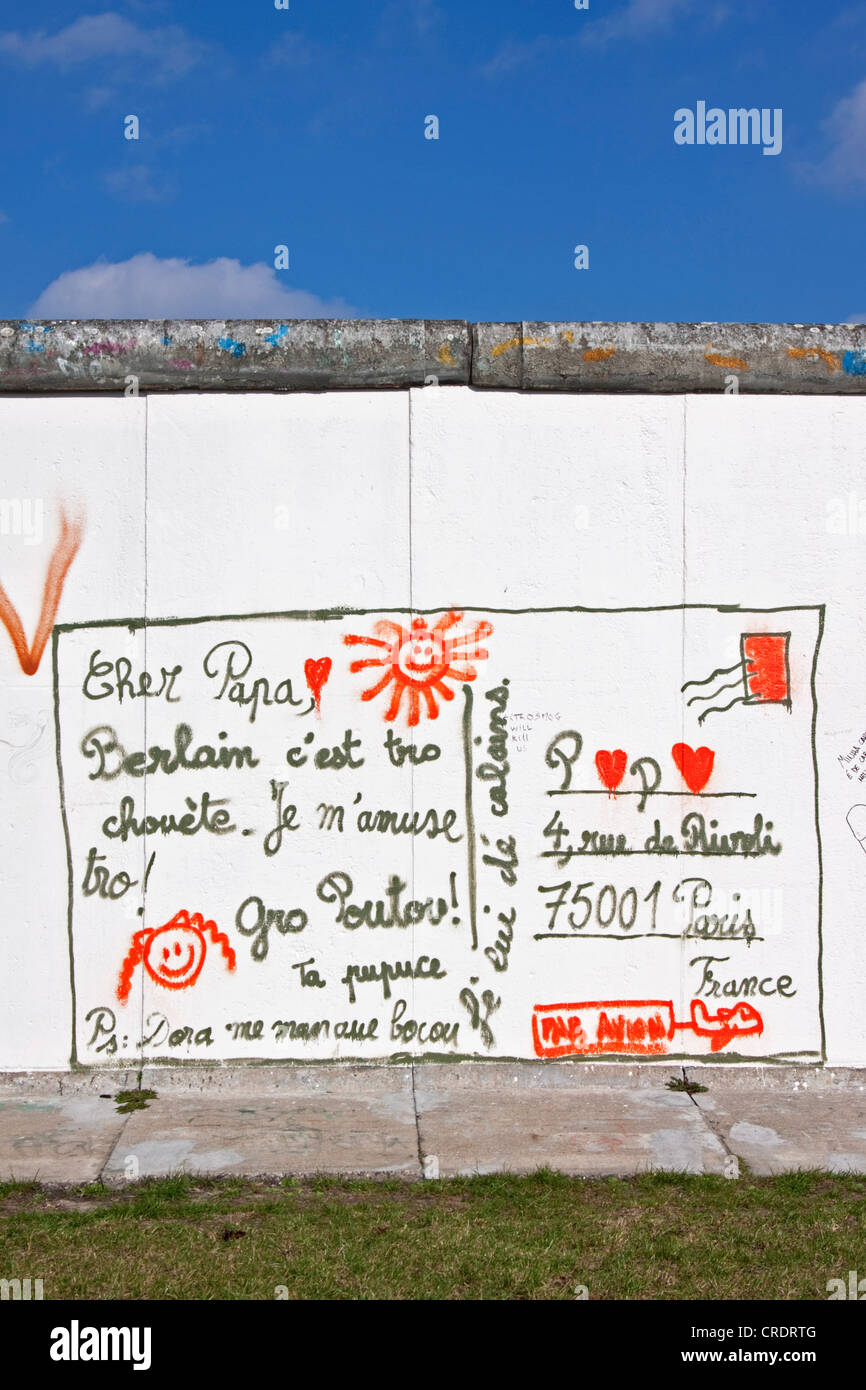 Cher Papa,
Berlain c'est tro
chouète. Je m'amuse
tro!
Gro Poutou!
Ta pupuce
Ps: Dora me manque bocou
j'lui dé calains.
CTROSMOG
WILL
KILL
US
P P
4, rue de Rivoli
75001 Paris
France
PAR AVION
alamy
Image ID: CRDRTG
www.alamy.com